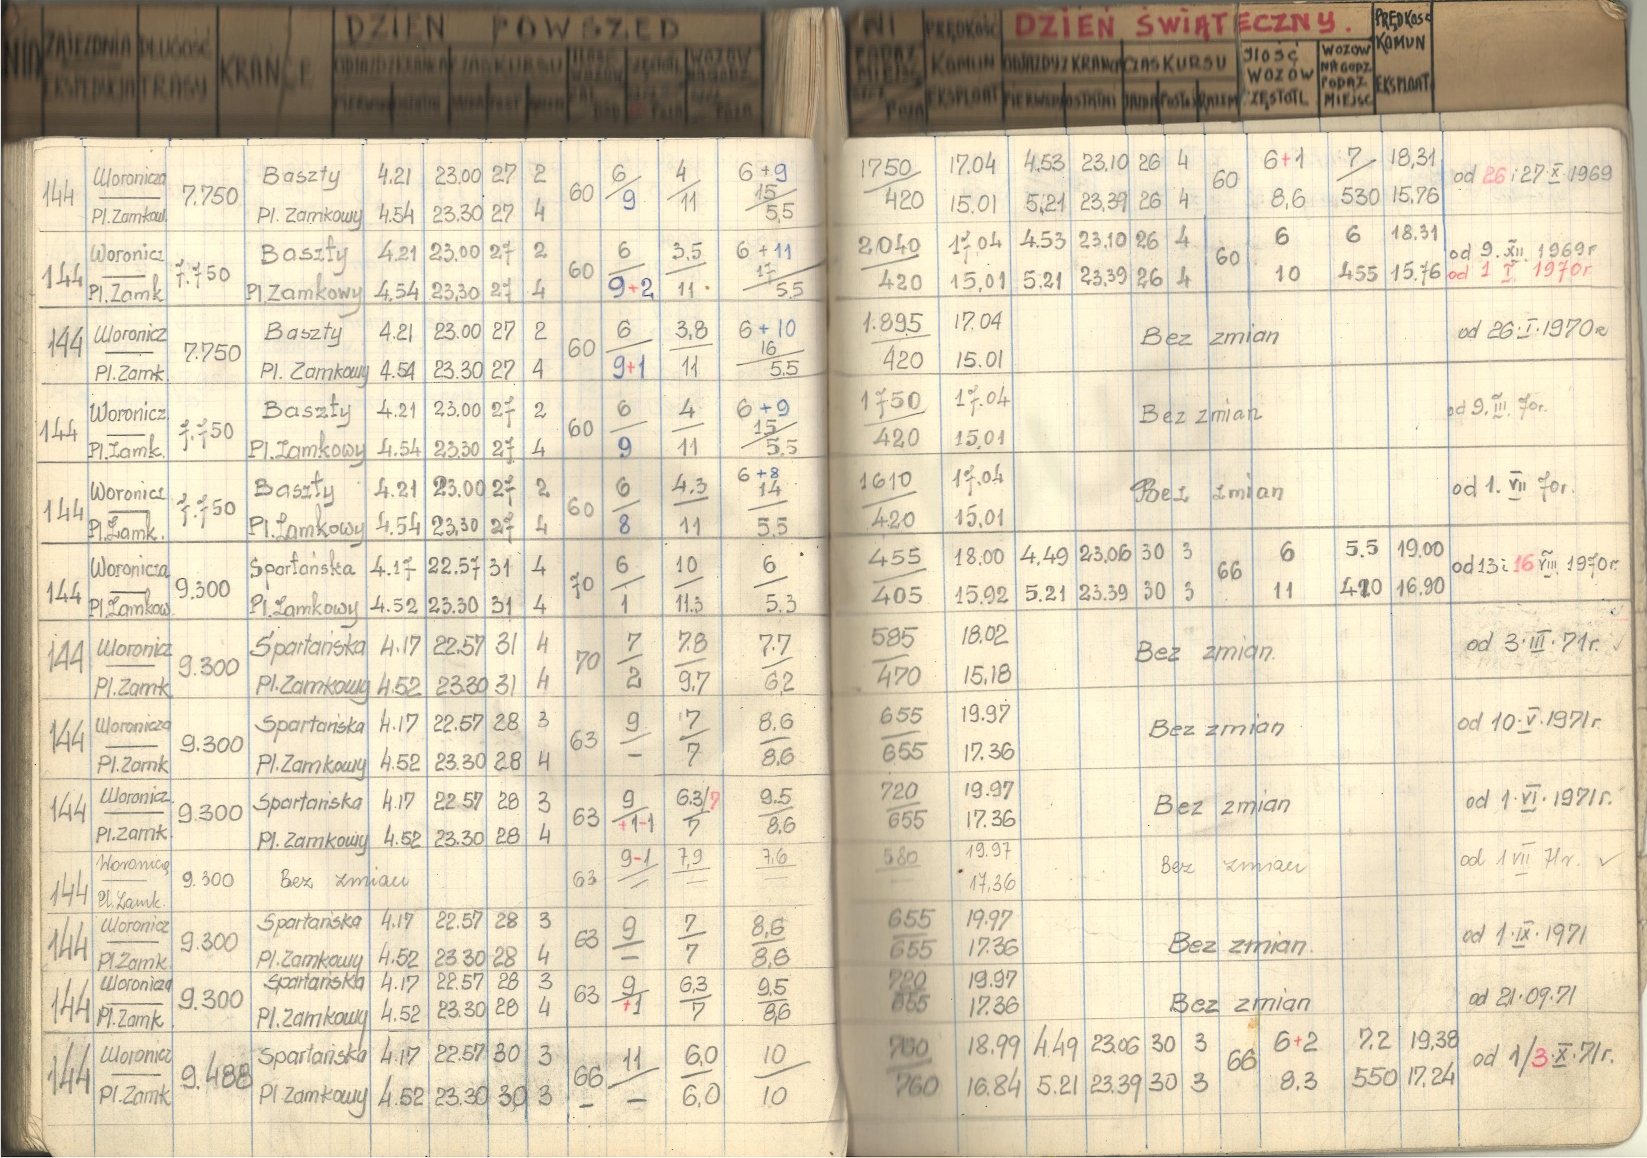 ZAJEZDNIA DŁUGOŚĆ KRAŃCE DZIEŃ POWSZED NI PRĘDKOŚĆ DZIEŃ ŚWIĄTECZNY. PRĘDKOŚĆ
EKSPEDYCJA TRASY ODJAZD Z KRAŃCA CZAS KURSU ILOŚĆ WOZÓW PODAŻ MIEJSC KOMUN ODJAZDY Z KRAŃCA CZAS KURSU ILOŚĆ WOZÓW WOZÓW NA GODZ KOMUN
PIERWSZ OSTATNI EKSPLOAT PIERWSZ OSTATNI JAZDA POSTÓJ RAZEM CZĘSTOTL PODAŻ MIEJSC EKSPLOAT
144 Woronicza Baszty 4.21 23.00 27 2 60 6 4 6+9 15 1750 17.04 4.53 23.10 26 4 60 6+1 7 18,31 od 26 i 27·X·1969
Pl.Zamkow. 7.750 Pl. Zamkowy 4.54 23.30 27 4 9 11 5,5 420 15.01 5.21 23,39 26 4 8,6 530 15,76
144 Woronicz Baszty 4.21 23.00 27 2 60 6 3,5 6+11 17 2040 17.04 4.53 23.10 26 4 60 6 6 18.31 od 9.XII.1969r
Pl.Zamk. 7.750 Pl.Zamkowy 4.54 23,30 27 4 9+2 11 5.5 420 15,01 5.21 23,39 26 4 10 455 15.76 od 1 I 1970r.
144 Woronicz Baszty 4.21 23.00 27 2 60 6 3,8 6+10 16 1.895 17.04 Bez zmian od 26·I·1970r
Pl.Zamk 7.750 Pl. Zamkowy 4.54 23.30 27 4 9+1 11 5.5 420 15.01
144 Woronicz Baszty 4.21 23.00 27 2 60 6 4 6+9 15 1750 17.04 Bez zmian od 9.III.70r.
Pl.Zamk. 7.750 Pl.Zamkowy 4.54 23.30 27 4 9 11 5.5 420 15,01
144 Woronicz Baszty 4.21 23.00 27 2 60 6 4.3 6+8 14 1610 17.04 Bez zmian od 1.VII 70r.
Pl.Zamk. 7.750 Pl.Zamkowy 4.54 23,30 27 4 8 11 5.5 420 15,01
144 Woronicza Spartańska 4.17 22.57 31 4 70 6 10 6 455 18.00 4.49 23.06 30 3 66 6 5.5 19.00 od 13 i 16 VIII 1970r.
Pl.Zamkow. 9.300 Pl.Zamkowy 4.52 23.30 31 4 1 11.3 5.3 405 15.92 5.21 23.39 30 3 11 420 16.90
144 Woronicz Spartańska 4.17 22.57 31 4 70 7 7.8 7.7 585 18.02 Bez zmian. od 3·III·71r.
Pl.Zamk 9.300 Pl.Zamkowy 4.52 23.30 31 4 2 9.7 6.2 470 15,18
144 Woronicza Spartańska 4.17 22.57 28 3 63 9 7 8.6 655 19.97 Bez zmian od 10·V·1971r.
Pl.Zamk 9.300 Pl.Zamkowy 4.52 23.30 28 4 – 7 8.6 655 17.36
144 Woronicz. Spartańska 4.17 22.57 28 3 63 9 6.3/7 9.5 720 19.97 Bez zmian od 1·VI·1971r.
Pl.Zamk 9.300 Pl.Zamkowy 4.52 23.30 28 4 +1-1 7 8.6 655 17.36
144 Woronicza 9.300 Bez zmian 63 9-1 7,9 7,6 580 19.97 Bez zmian od 1 VII 71r.
Pl.Zamk. 17,36
144 Woronicz Spartańska 4.17 22.57 28 3 63 9 7 8,6 655 19.97 Bez zmian. od 1·IX·1971
Pl.Zamk. 9.300 Pl.Zamkowy 4.52 23.30 28 4 – 7 8,6 655 17.36
144 Woronicza Spartańska 4.17 22.57 28 3 63 9 6,3 9,5 720 19.97 Bez zmian od 21·09·71
Pl.Zamk. 9.300 Pl.Zamkowy 4.52 23.30 28 4 +1 7 8,6 655 17.36
144 Woronicz Spartańska 4.17 22.57 30 3 66 11 6,0 10 760 18.99 4.49 23.06 30 3 66 6+2 7.2 19,38 od 1/3·X·71r.
Pl.Zamk 9.488 Pl Zamkowy 4.52 23.30 30 3 – – 6,0 10 760 16.84 5.21 23.39 30 3 8,3 550 17.24